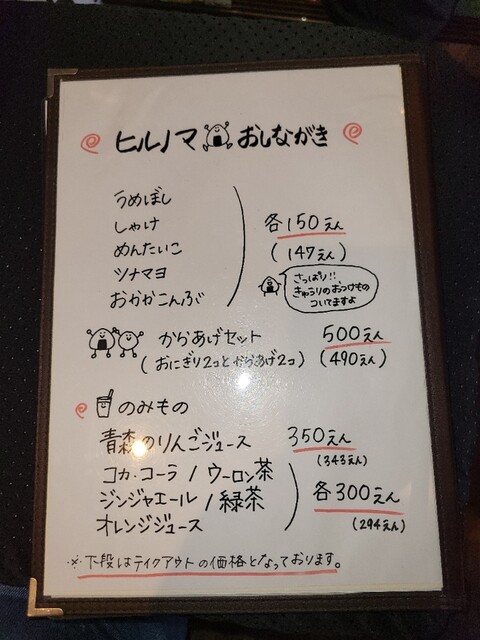 ヒルノマ おしながき
うめぼし
しゃけ
めんたいこ
ツナマヨ
おかかこんぶ
各150えん
(147えん)
さっぱり!!
きゅうりのおつけもの
ついてますよ
からあげセット 500えん
(おにぎり2コとからあげ2コ) (490えん)
のみもの
青森のりんごジュース 350えん
(343えん)
コカ・コーラ / ウーロン茶
ジンジャエール / 緑茶
オレンジジュース
各300えん
(294えん)
※下段はテイクアウトの価格となっております。